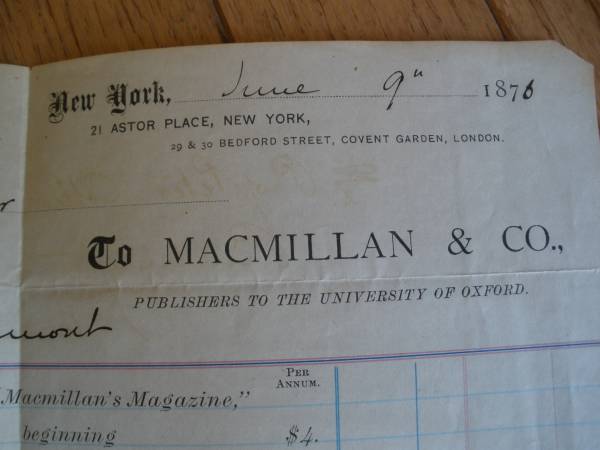 New York, June 9" 1876
21 ASTOR PLACE, NEW YORK,
29 & 30 BEDFORD STREET, COVENT GARDEN, LONDON.
To MACMILLAN & CO.,
PUBLISHERS TO THE UNIVERSITY OF OXFORD.
PER
ANNUM.
"Macmillan's Magazine,"
beginning $4.